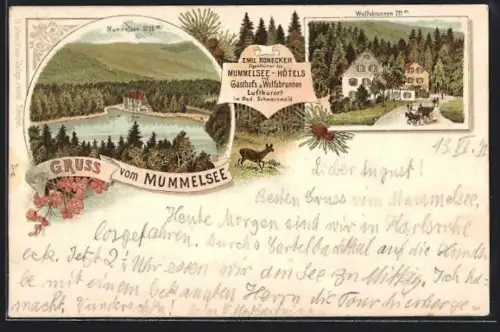 Mummelsee 1028 m.
Wolfsbrunnen 711 m.
EMIL RONECKER
Eigenthümer des
MUMMELSEE-HÔTELS
und
Gasthofs z. Wolfsbrunnen
Luftkurort
im Bad. Schwarzwald
GRUSS vom MUMMELSEE
13. VI.
Lieber August!
Besten Gruss vom Mummelsee.
Heute Morgen sind wir in Karlsruhe
losgefahren, durchs auf die Hunds-
eck. Jetzt 2½ Uhr essen wir am See zu Mittag. Ich ha-
be mit einem bekannten Herrn die Tour hierherge-
macht.